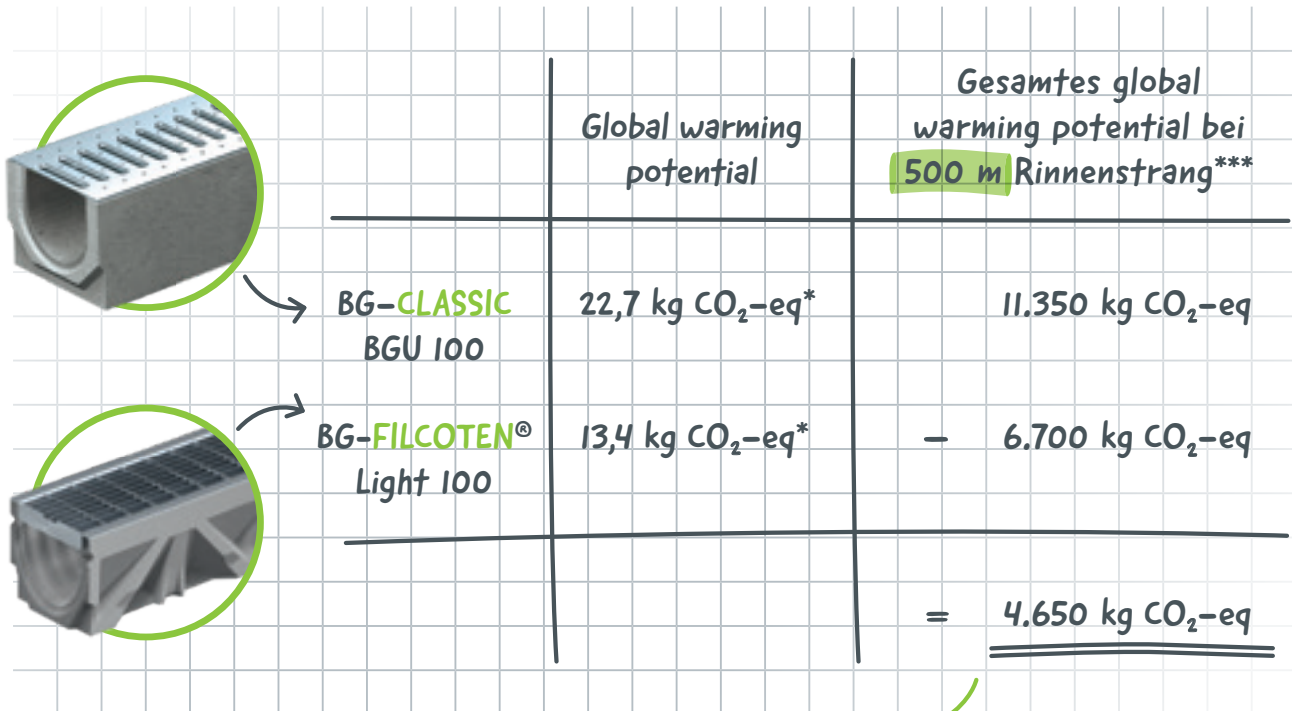 Global warming
potential
Gesamtes global
warming potential bei
500 m Rinnenstrang***
BG-CLASSIC
BGU 100
22,7 kg CO₂-eq*
11.350 kg CO₂-eq
BG-FILCOTEN®
Light 100
13,4 kg CO₂-eq*
– 6.700 kg CO₂-eq
= 4.650 kg CO₂-eq